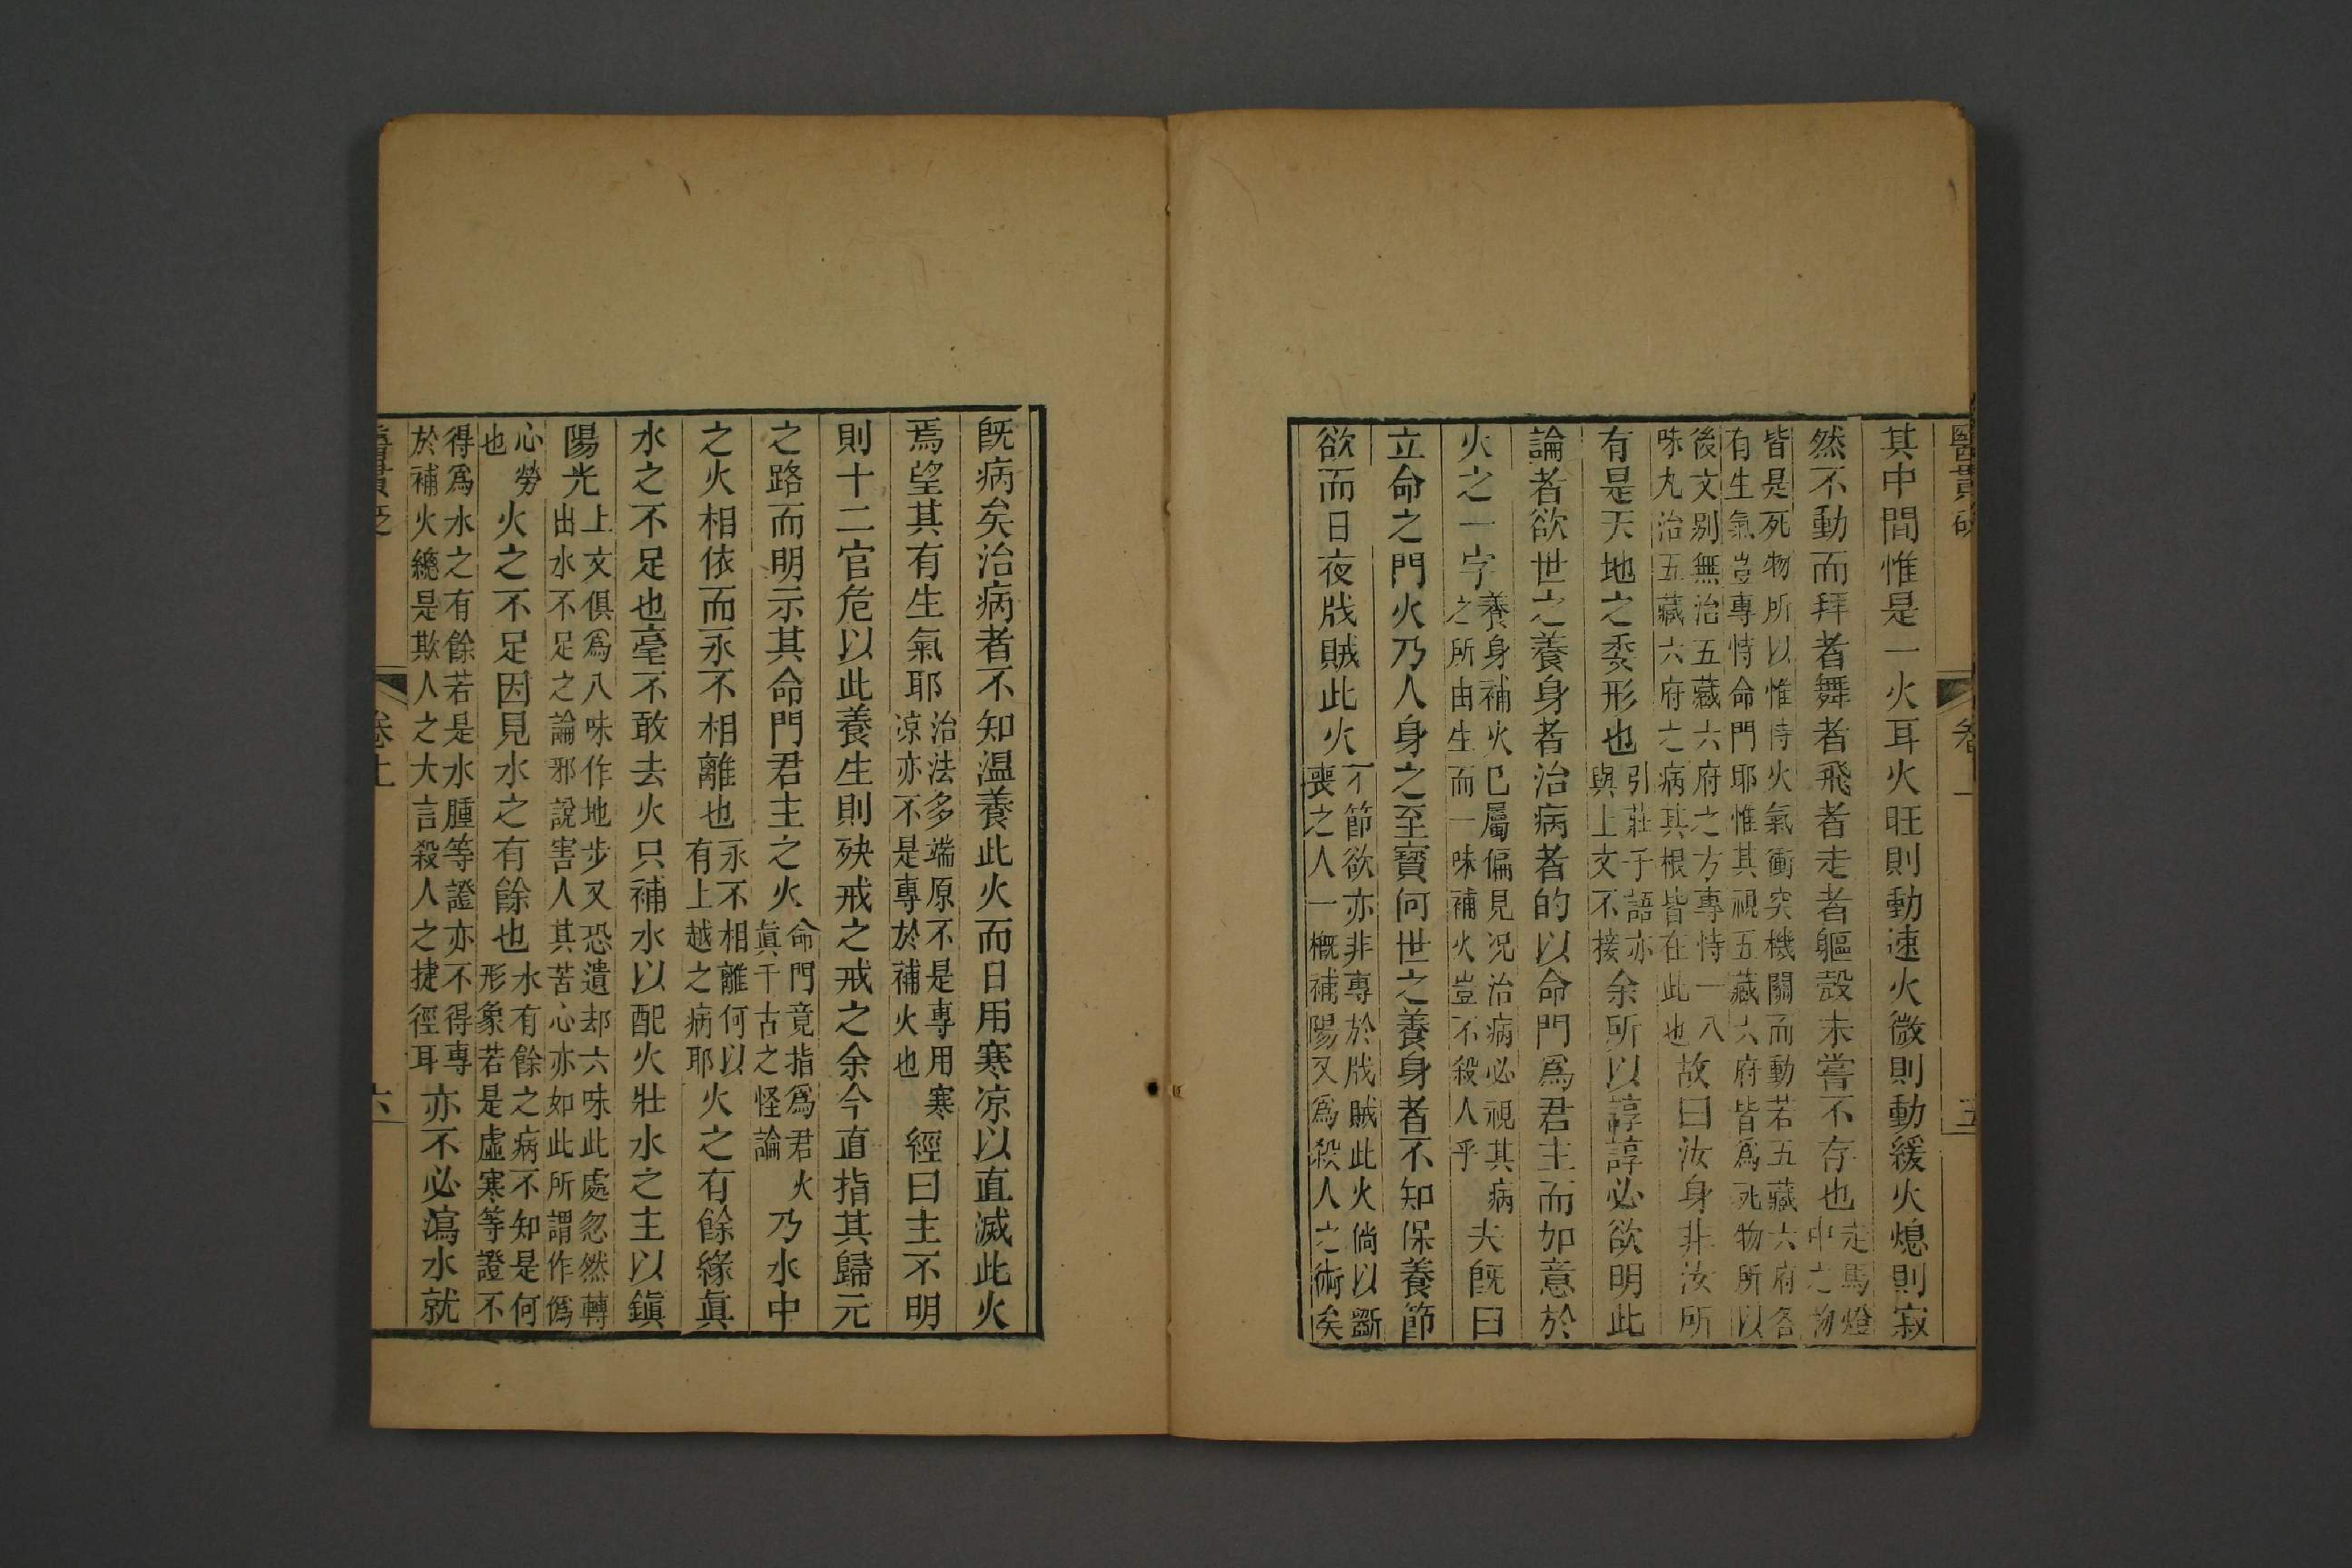 醫貫砭
卷上
五
其中間惟是一火耳火旺則動速火微則動緩火熄則寂
然不動而拜者舞者飛者走者軀殼未嘗不存也
走馬燈
中之物
皆是死物所以惟恃火氣衝突機關而動若五藏六府各
有生氣豈專恃命門耶惟其視五藏六府皆爲死物所以
後文别無治五藏六府之方專恃一八
味丸治五藏六府之病其根皆在此也
故曰汝身非汝所
有是天地之委形也
引莊子語亦
與上文不接
余所以諄諄必欲明此
論者欲世之養身者治病者的以命門爲君主而如意於
火之一字
養身補火已屬偏見况治病必視其病
之所由生而一味補火豈不殺人乎
夫旣曰
立命之門火乃人身之至寳何世之養身者不知保養節
欲而日夜戕賊此火
不節欲亦非專於戕賊此火倘以斵
喪之人一概補陽又爲殺人之術矣
旣病矣治病者不知温養此火而日用寒凉以直滅此火
焉望其有生氣耶
治法多端原不是專用寒
凉亦不是專於補火也
經曰主不明
則十二官危以此養生則殃戒之戒之余今直指其歸元
之路而明示其命門君主之火
命門竟指爲君火
眞千古之怪論
乃水中
之火相依而永不相離也
永不相離何以
有上越之病耶
火之有餘緣眞
水之不足也毫不敢去火只補水以配火壯水之主以鎭
陽光
上文俱爲八味作地步又恐遺却六味此處忽然轉
出水不足之論邪說害人其苦心亦如此所謂作僞
心勞
也
火之不足因見水之有餘也
水有餘之病不知是何
形象若是虛寒等證不
得爲水之有餘若是水腫等證亦不得專
於補火緫是欺人之大言殺人之捷徑耳
亦不必瀉水就
醫貫砭
卷上
六